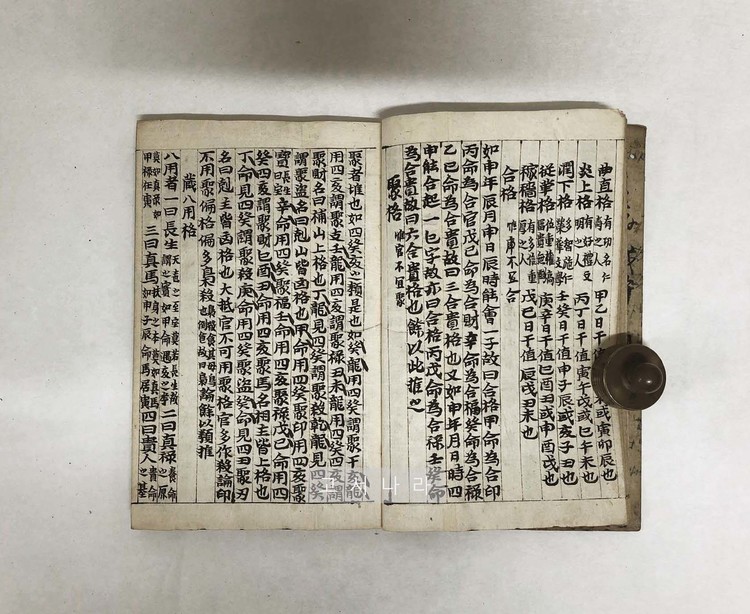 曲直格 有功名仁壽之人 甲乙日干値 或寅卯辰也
炎上格 有好禮文明之人 丙丁日干値寅午戌或巳午未也
潤下格 多智施仁 壬癸日干値申子辰或亥子丑也
從革格 庚辛日干値巳酉丑或申酉戌也
稼穡格 戊己日干値辰戌丑未也
合格 唯庫不宜合
如申年辰月申日辰時能會一子故曰合格甲命為合印
丙命為合官戊己命為合財辛命為合福癸命為合祿
乙巳命為合貴故曰三合貴格也又如申年月日時四
申能合起一巳字故亦曰合格丙戊命為合祿壬癸命
為合貴故曰六合貴格也餘以此推之
聚格 唯官不宜聚
聚者堆也如四癸亥之類是也如癸龍用四癸謂聚干亥龍
用四亥謂聚支壬龍用四亥謂聚祿丑未龍用四癸四亥謂
聚財名曰桶山上格也丁龍見四癸謂聚殺乾龍見四癸
謂聚盜名曰剋山皆凶格也甲命用四癸聚印用四亥聚
長生辛命用四癸聚福壬命用四亥聚祿戊己命用四
癸四亥謂聚財乙酉丑命用四亥聚馬名相主皆上格也
丁命見四癸聚殺庚命用四癸聚盜癸命見四丑聚刃
名曰剋主皆凶格也大抵官不可用聚格官多作殺論印
不用聚偏格偏多梟殺也 論餘以類推
藏八用格
八用者一曰長生 二曰真祿
三曰真馬 如申子辰命馬居寅 四曰貴人